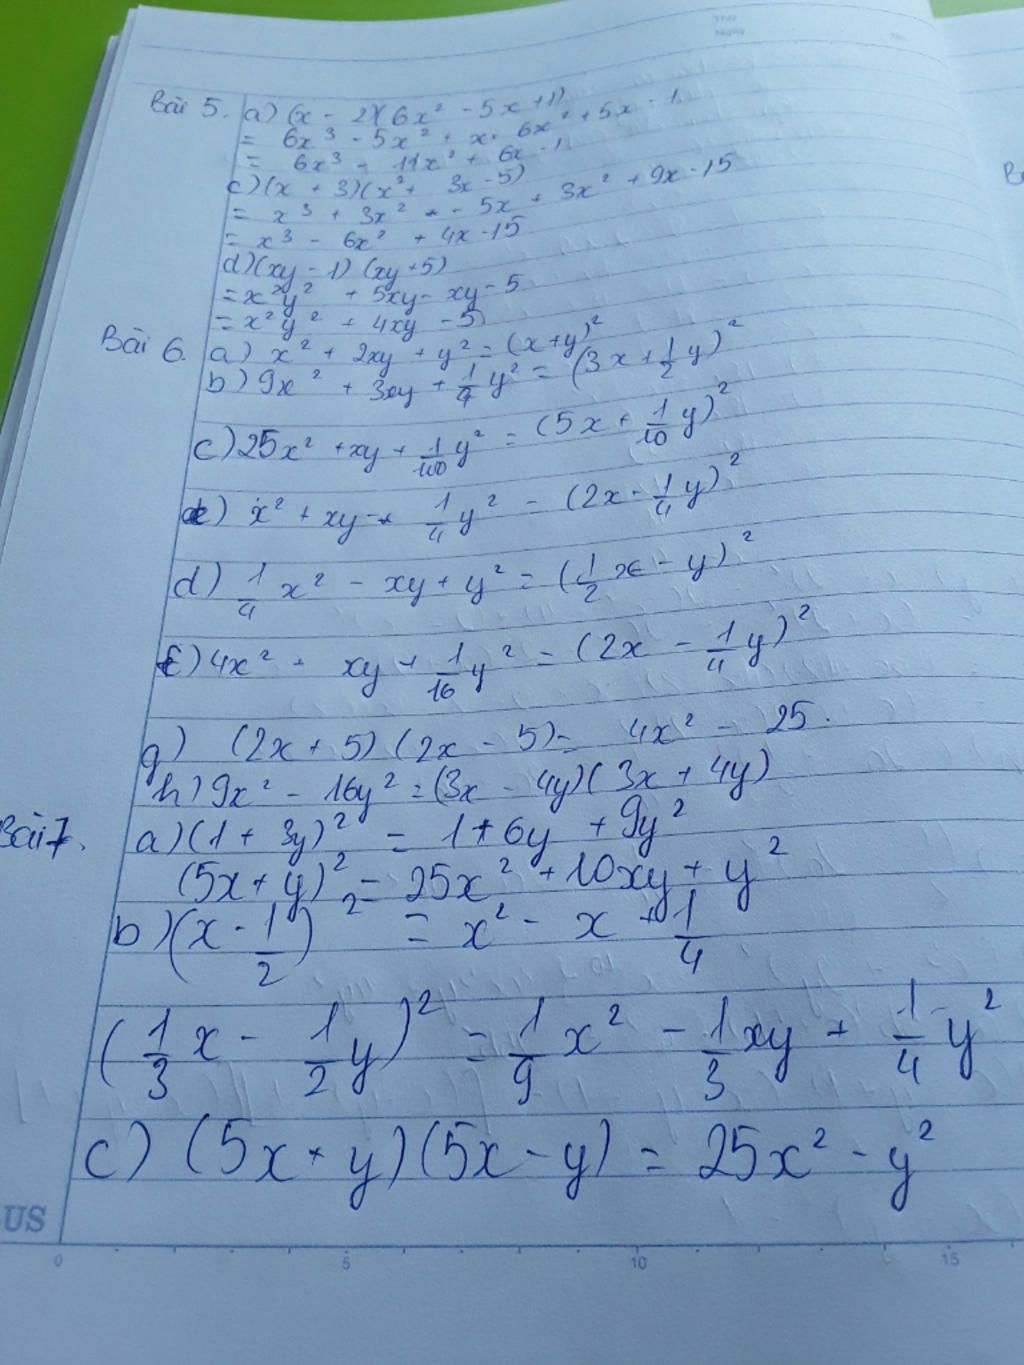 Thứ
Ngày
No.
Bài 5. a) (x - 2)(6x² - 5x + 1)
= 6x³ - 5x² + x - 6x² + 5x - 1
= 6x³ - 11x² + 6x - 1
c) (x + 3)(x² + 3x - 5)
= x³ + 3x² + - 5x + 3x² + 9x - 15
= x³ - 6x² + 4x - 15
d) (xy - 1) (xy + 5)
= x²y² + 5xy - xy - 5
= x²y² + 4xy - 5
Bài 6. a) x² + 2xy + y² = (x + y)²
b) 9x² + 3xy + 1/4 y² = (3x + 1/2 y)²
c) 25x² + xy + 1/100 y² = (5x + 1/10 y)²
e) x² + xy + 1/4 y² = (2x - 1/4 y)²
d) 1/4 x² - xy + y² = (1/2 x - y)²
f) 4x² - xy + 1/16 y² = (2x - 1/4 y)²
g) (2x + 5) (2x - 5) = 4x² - 25.
h) 9x² - 16y² = (3x - 4y)(3x + 4y)
Bài 7. a) (1 + 3y)² = 1 + 6y + 9y²
(5x + y)² = 25x² + 10xy + y²
b) (x - 1/2)² = x² - x + 1/4
(1/3 x - 1/2 y)² = 1/9 x² - 1/3 xy + 1/4 y²
c) (5x + y)(5x - y) = 25x² - y²
US
0 5 10 15